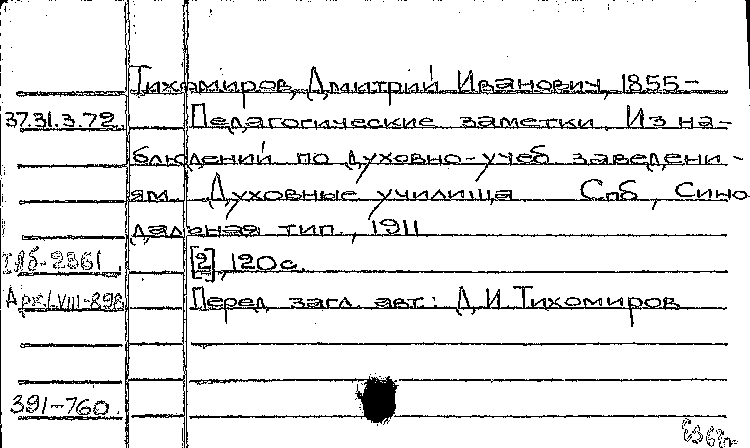 Тихомиров, Дмитрий Иванович, 1855-
37.31.3.72. Педагогические заметки. Из на-
блюдений по духовно-учеб. заведени-
ям. Духовные училища Спб, Сино
дальная тип., 1911
[2], 120с.
Перед загл. авт.: Д.И.Тихомиров
391-760.